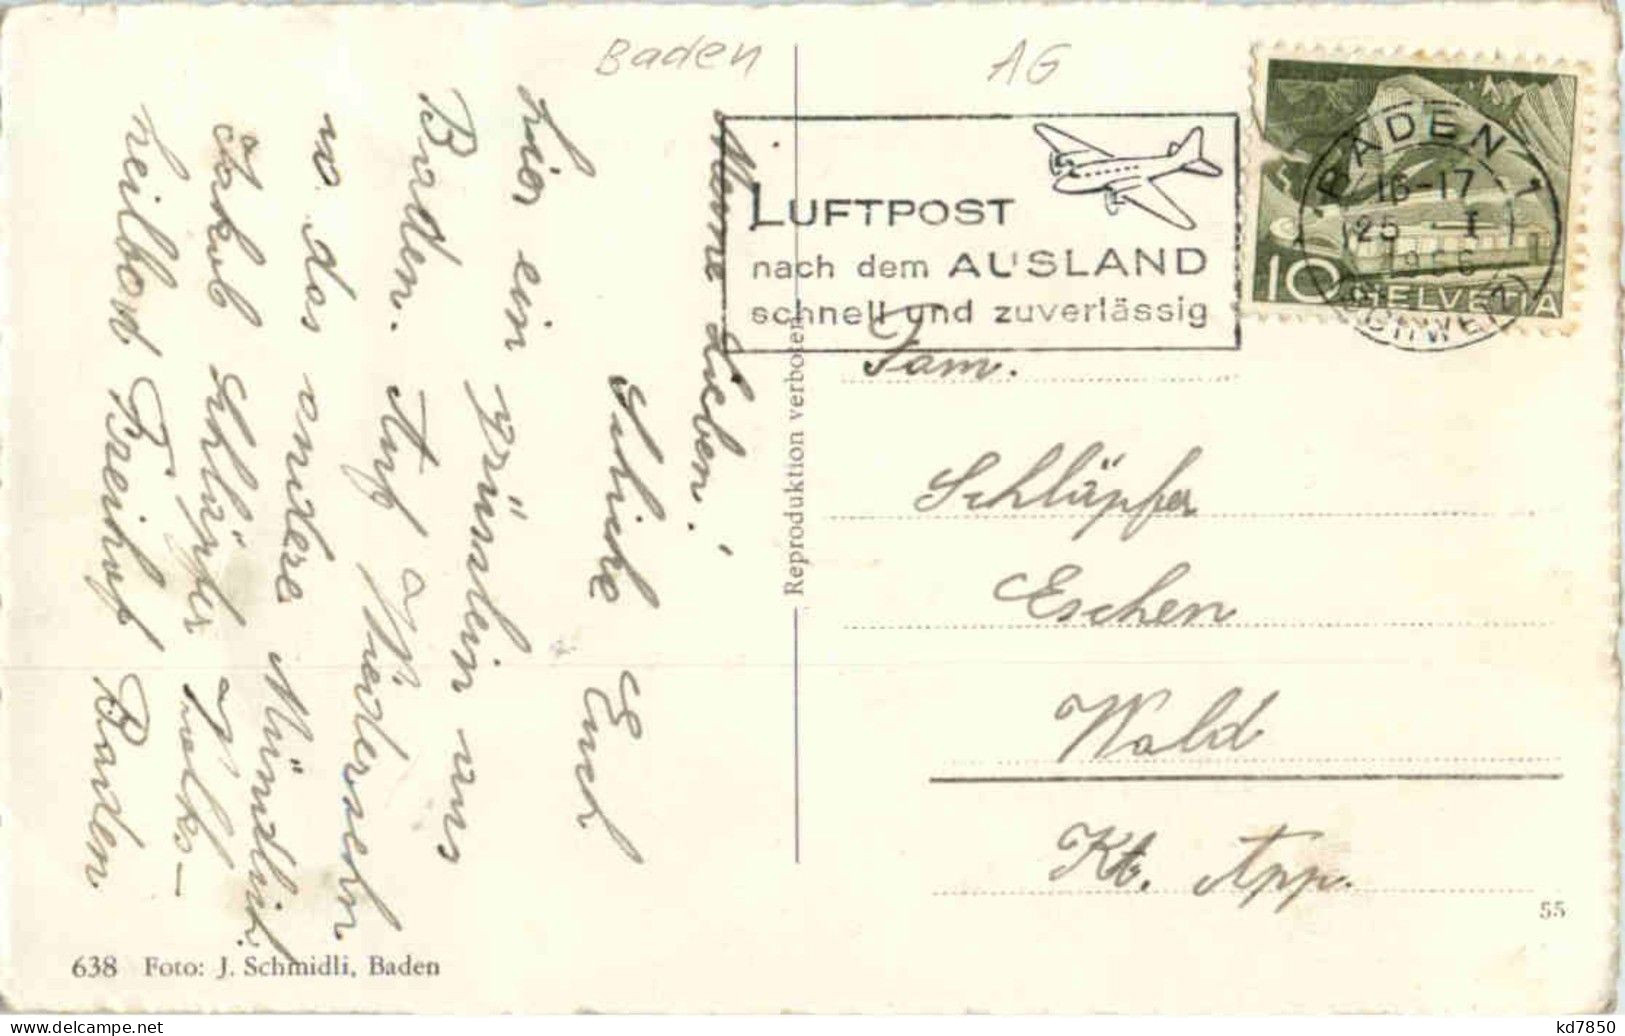 Baden
AG
LUFTPOST
nach dem AUSLAND
schnell und zuverlässig
BADEN 1
16-17
25 -I
1956
(SCHWEIZ)
10
HELVETIA
Meine Lieben!
Schicke Euch
hier ein grüsslein aus
Baden. Auf Wiedersehn
wo das andere Mündlich.
Jakob Schläpfer Volks-
heilbad Freihof Baden
Reproduktion verboten
Fam.
Schläpfer
Eschen
Wald
Kt. App.
55
638 Foto: J. Schmidli, Baden
kd7850